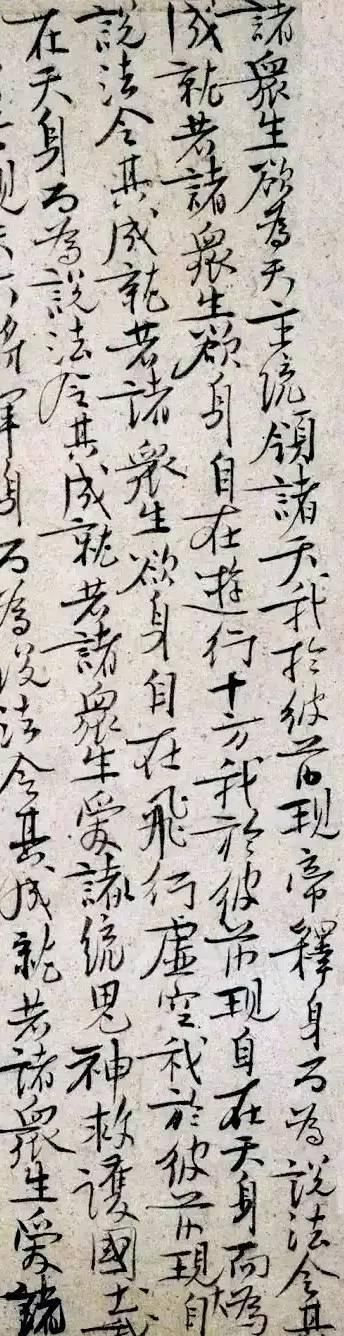 諸眾生欲為天主統領諸天我於彼前現帝釋身而為說法令其
成就若諸眾生欲身自在遊行十方我於彼前現自在天身而為
說法令其成就若諸眾生欲身自在飛行虛空我於彼前現自
在天身而為說法令其成就若諸眾生愛諸統鬼神救護國土我
現天大將軍身而為說法令其成就若諸眾生愛諸